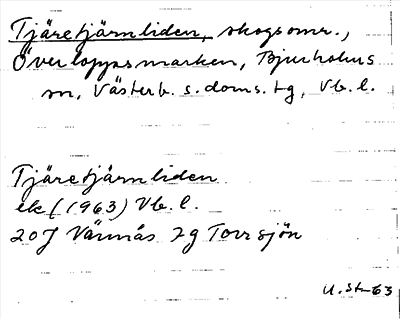 Tjäretjärnliden, skogsomr.,
Överloppsmarken, Bjurholms
sn, Västerb. s. doms. tg, Vb. l.
Tjäretjärnliden
ek (1963) Vb. l.
20 J Vännäs 7g Torrsjön
U. St-63